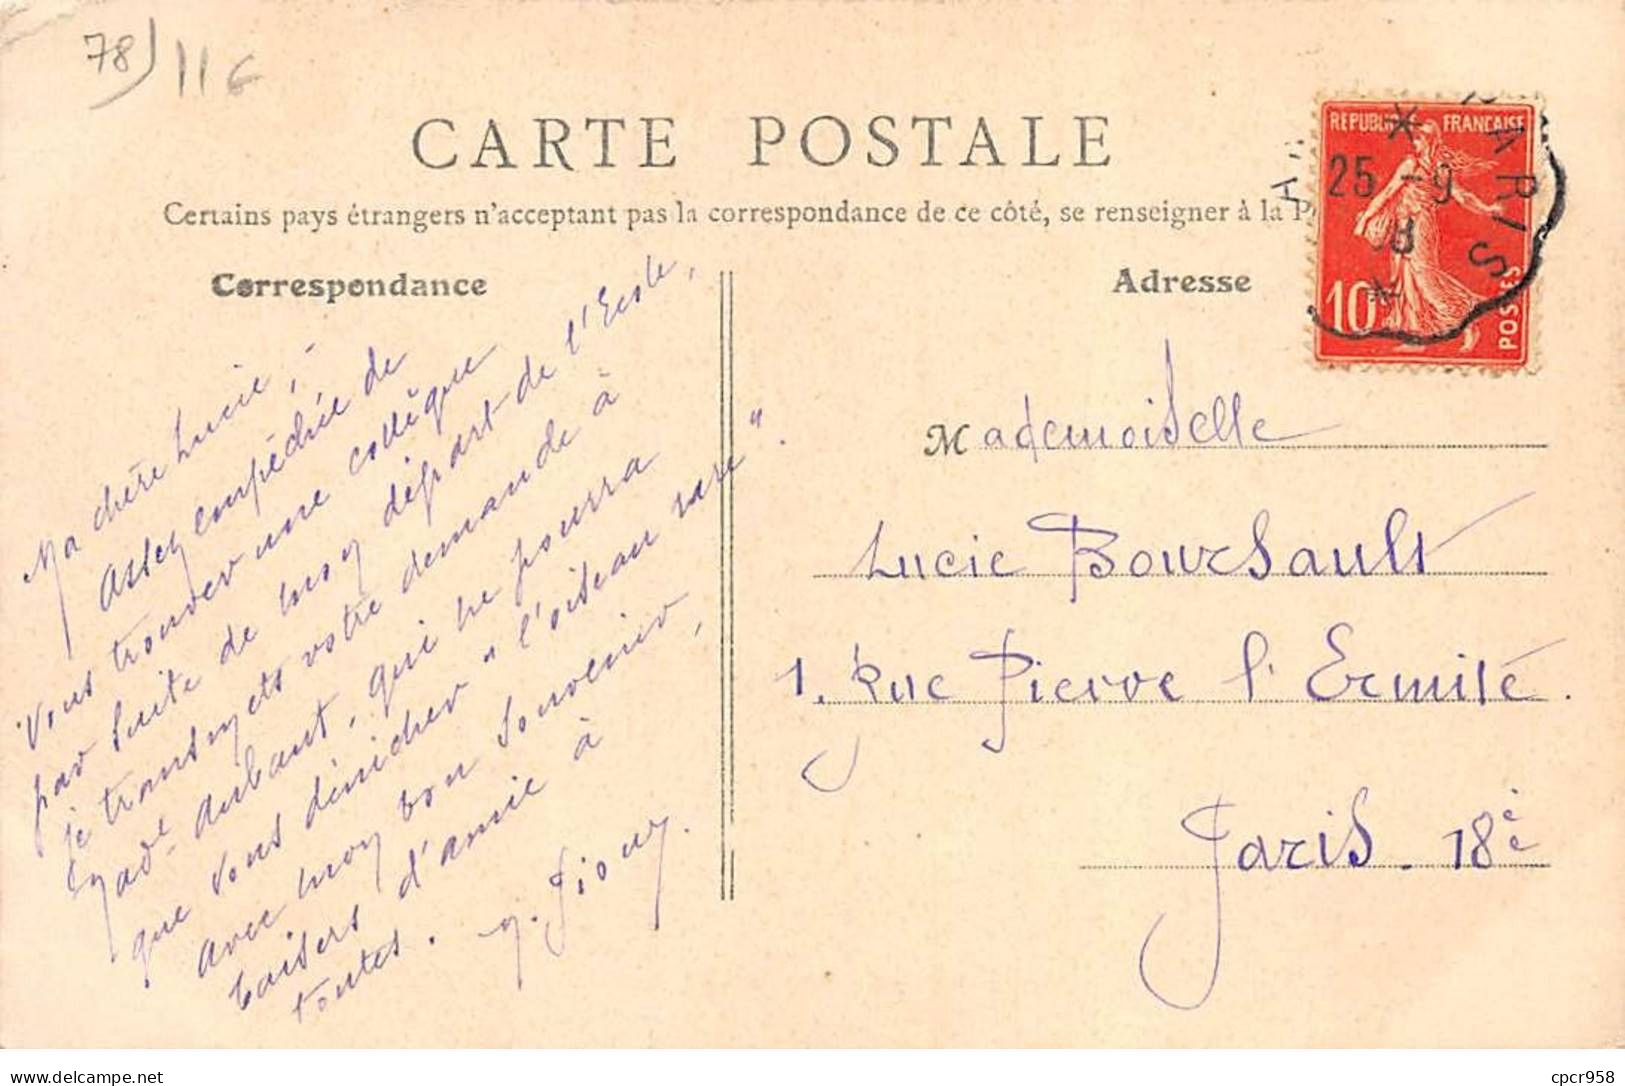 78) 11 G
CARTE POSTALE
Certains pays étrangers n'acceptent pas la correspondance de ce côté, se renseigner à la P
Correspondance
Adresse
REPUBLIQUE FRANÇAISE
10
POSTES
PARIS
25 - 9
08
Ma chère Lucie,
Assez empêchée de
vous trouver une collègue
par suite de mon départ de l'Ecole,
je transmets votre demande à
Mad.lle Aubaut, qui ne pourra
que vous dénicher "l'oiseau rare".
Avec mon bon souvenir,
baisers d'amie à
toutes.
Mademoiselle
Lucie Boursault
1. Rue Pierre l'Ermite.
Paris. 18è
cpcr958